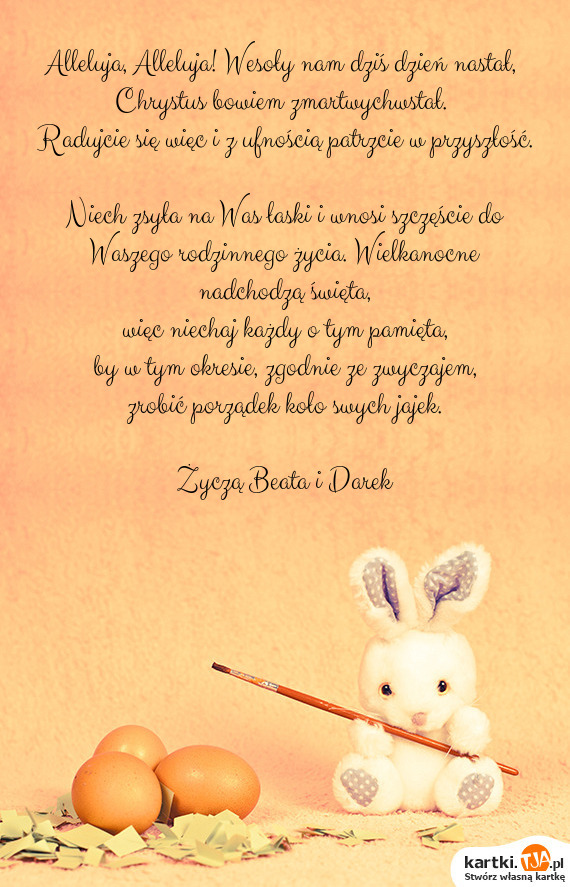 Alleluja, Alleluja! Wesoły nam dziś dzień nastał,
Chrystus bowiem zmartwychwstał.
Radujcie się więc i z ufnością patrzcie w przyszłość.
Niech zsyła na Was łaski i wnosi szczęście do
Waszego rodzinnego życia. Wielkanocne
nadchodzą święta,
więc niechaj każdy o tym pamięta,
by w tym okresie, zgodnie ze zwyczajem,
zrobić porządek koło swych jajek.
Życzą Beata i Darek
kartki.TJA.pl
Stwórz własną kartkę